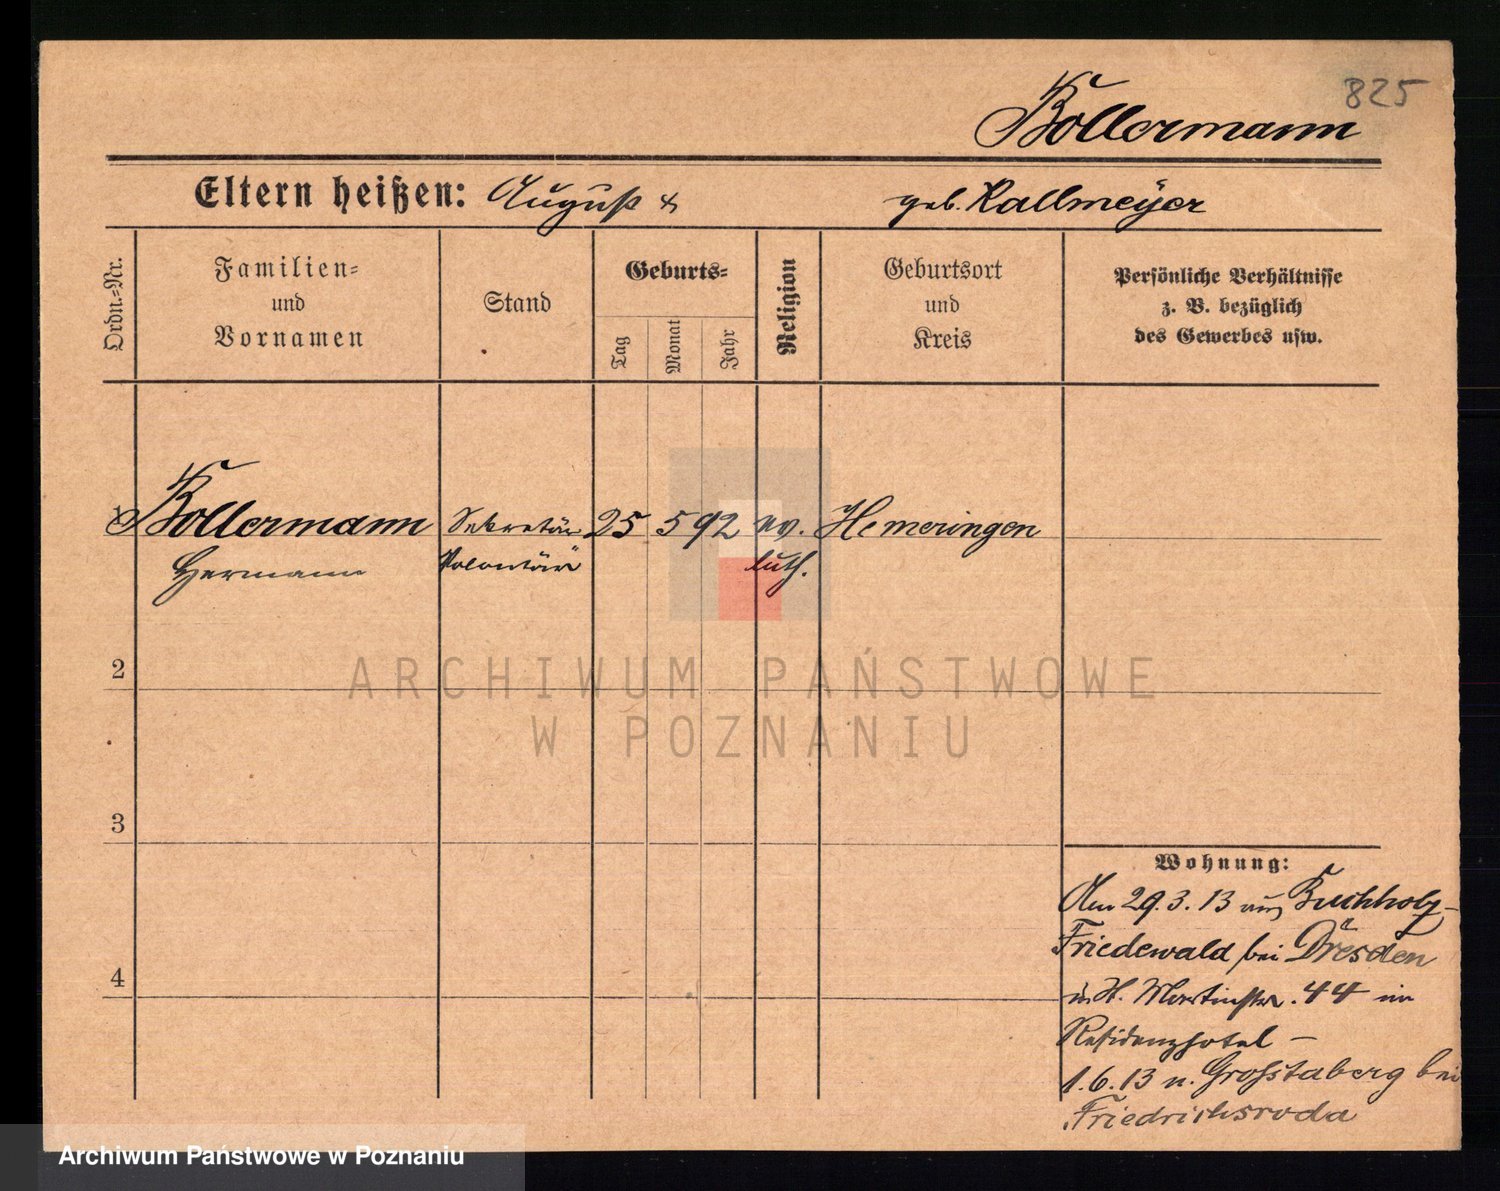 825
Bollermann
Eltern heißen: August & geb. Kallmeyer
Ordn.-Nr.
Familien-
und
Vornamen
Stand
Geburts-
Tag
Monat
Jahr
Religion
Geburtsort
und
Kreis
Persönliche Verhältnisse
z. B. bezüglich
des Gewerbes usw.
1 Bollermann Sekretär 25 5 92 ev. Hemeringen
Hermann Volontär luth.
2
ARCHIWUM PAŃSTWOWE
W POZNANIU
3
4
Wohnung:
Am 29.3.13 aus Buchholz-
Friedewald bei Dresden
n. H. Martinstr. 44 im
Residenzhotel –
1.6.13 n. Grosstaberg bei
Friedrichsroda
Archiwum Państwowe w Poznaniu